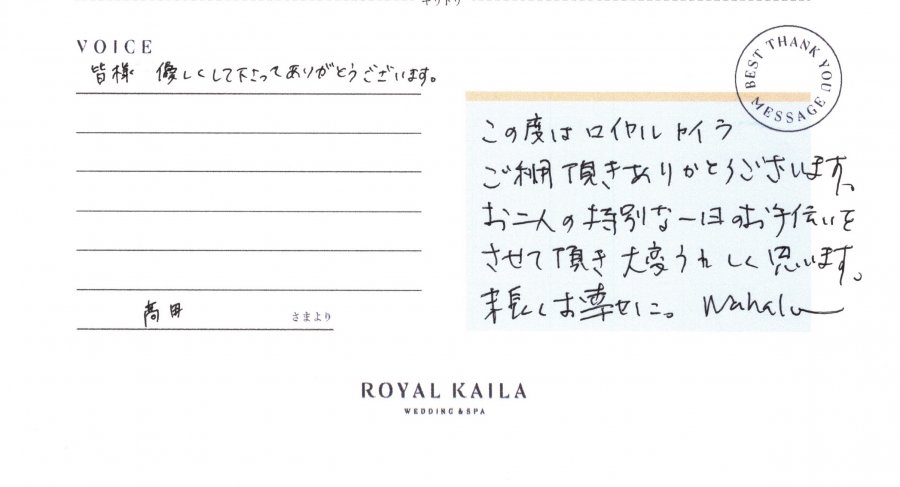 キリトリ
VOICE
皆様 優しくして下さってありがとうございます。
高田
さまより
BEST THANK YOU MESSAGE
この度はロイヤルカイラ
ご利用頂きありがとうございます。
お二人の特別な一日のお手伝いを
させて頂き大変うれしく思います。
末長くお幸せに。 Mahalo
ROYAL KAILA
WEDDING & SPA